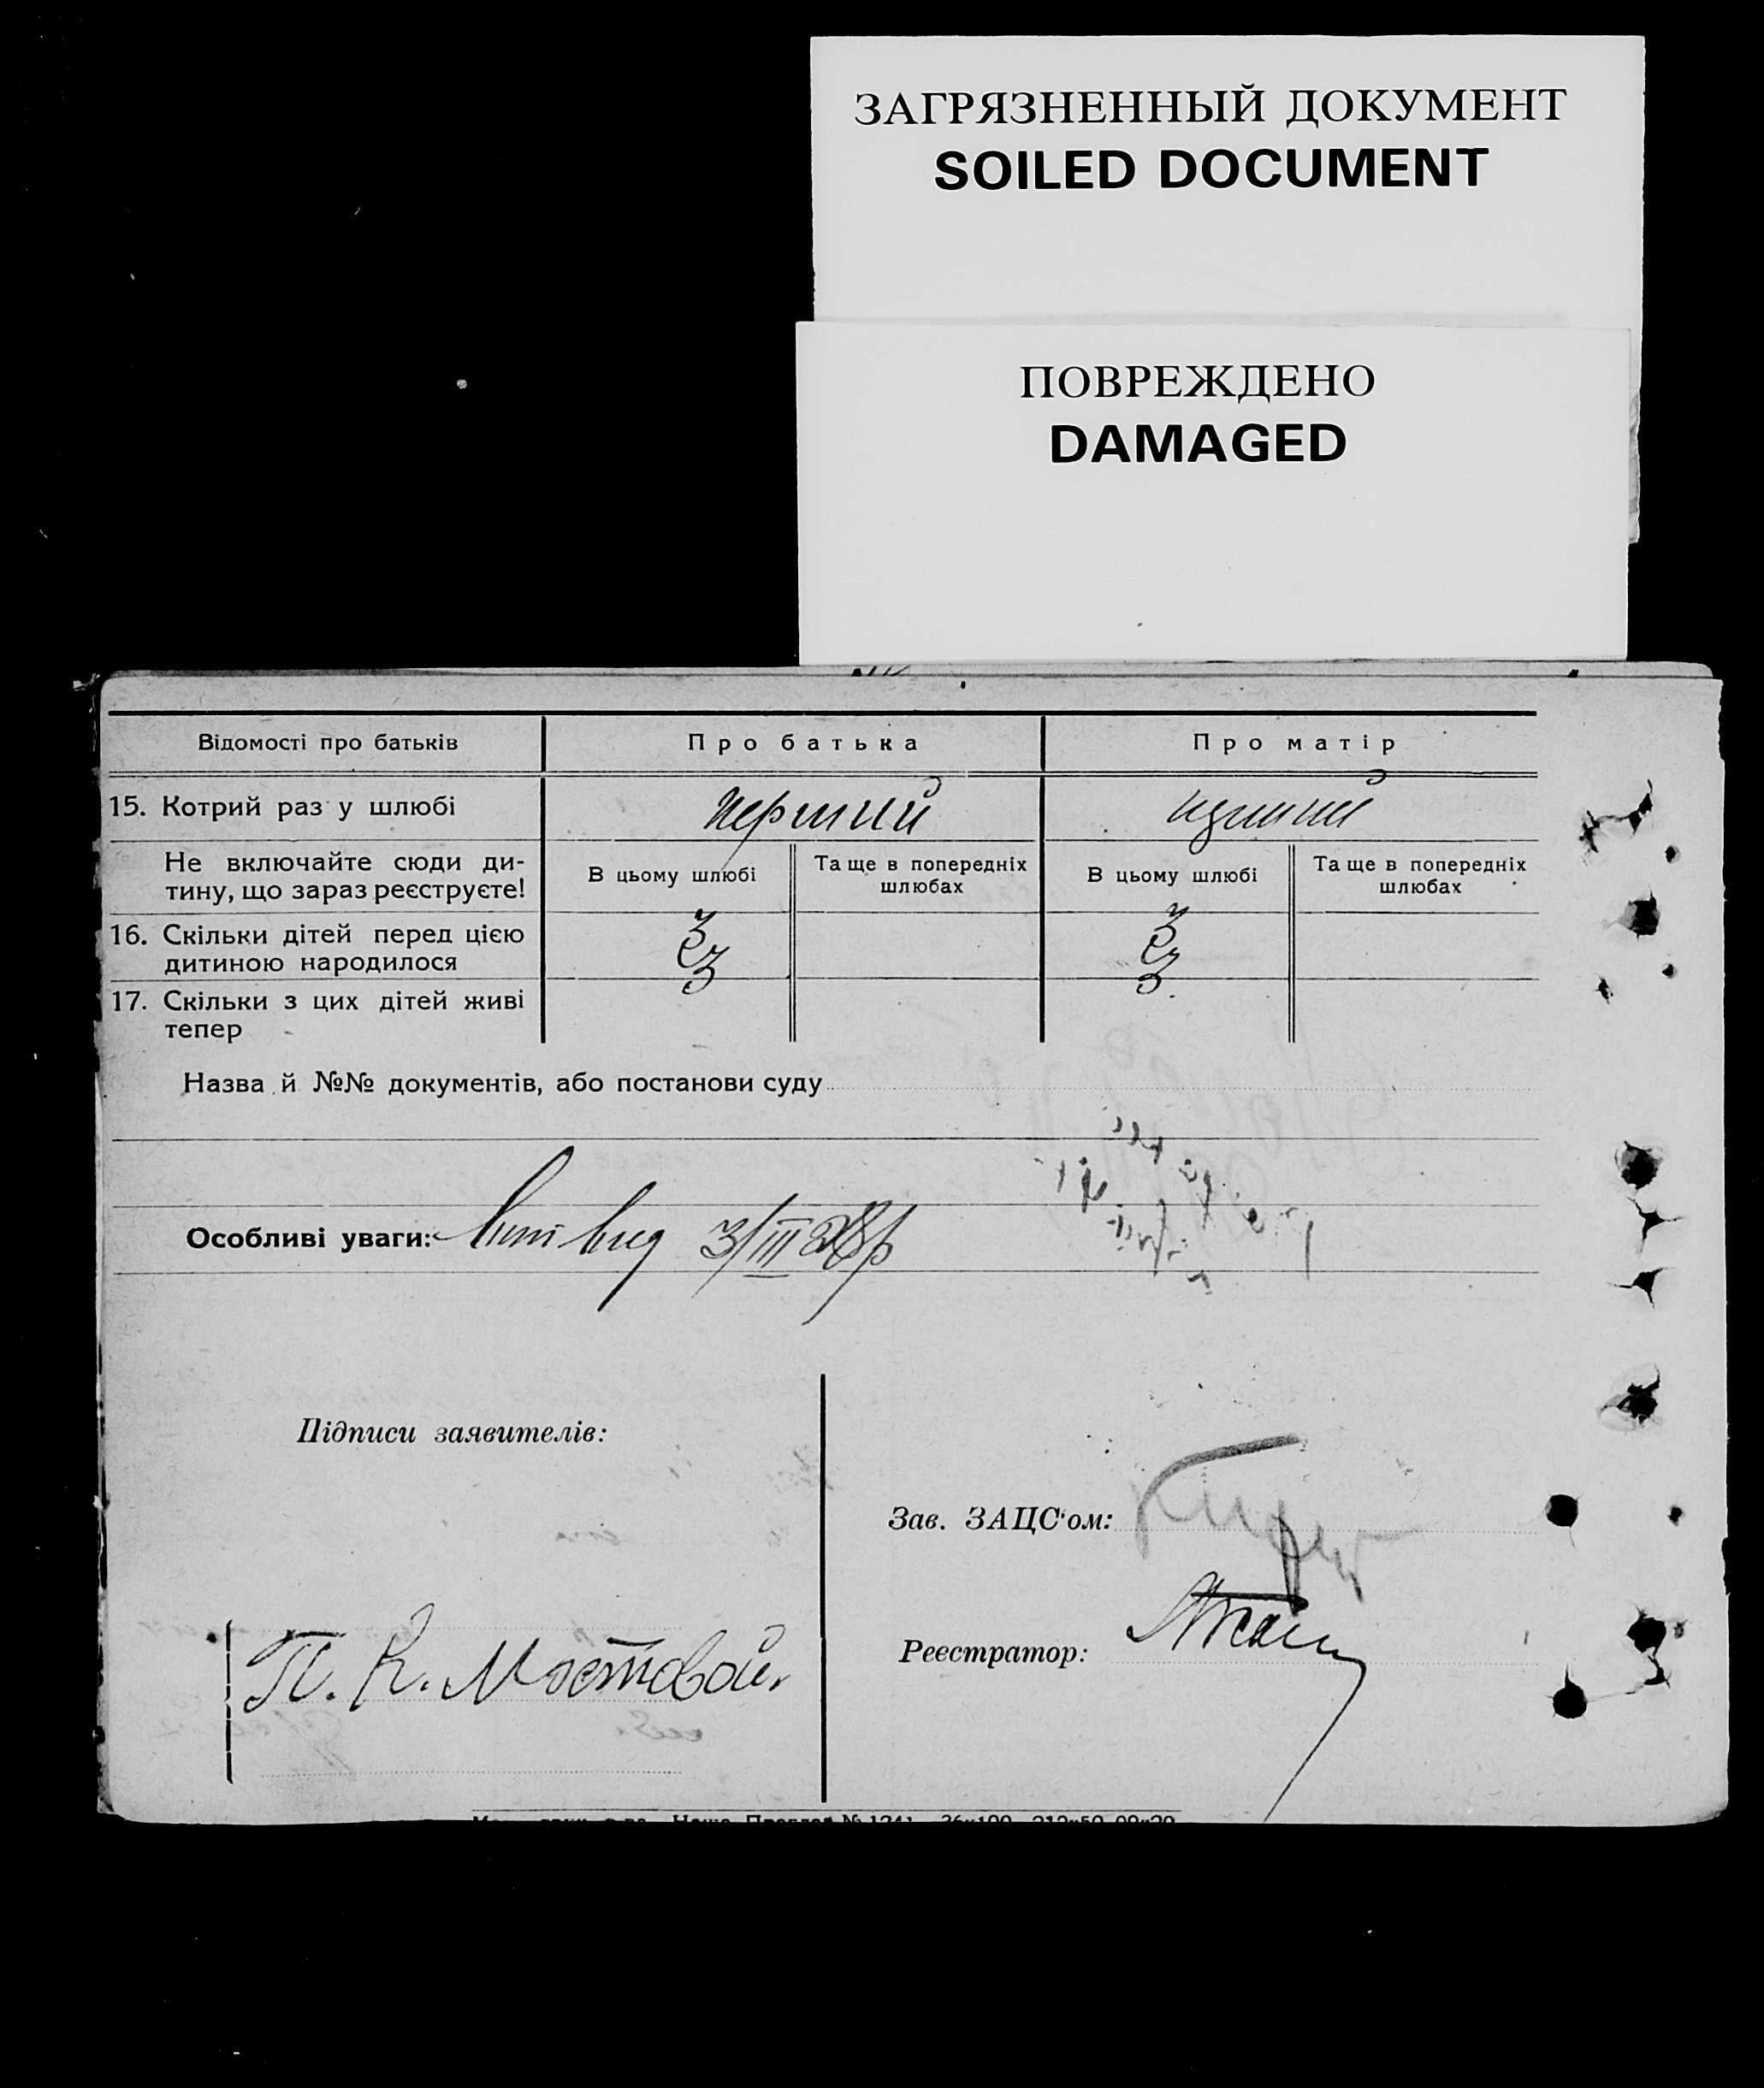 ЗАГРЯЗНЕННЫЙ ДОКУМЕНТ
SOILED DOCUMENT
ПОВРЕЖДЕНО
DAMAGED
Відомості про батьків Про батька Про матір
15. Котрий раз у шлюбі перший
Не включайте сюди ди-
тину, що зараз реєструєте!
В цьому шлюбі Та ще в попередніх шлюбах В цьому шлюбі Та ще в попередніх шлюбах
16. Скільки дітей перед цією
дитиною народилося 3 3
17. Скільки з цих дітей живі
тепер 3 3
Назва й №№ документів, або постанови суду
Особливі уваги: 3/III 28р
Підписи заявителів:
Зав. ЗАЦС'ом:
Реєстратор:
П. К. Мостовой.